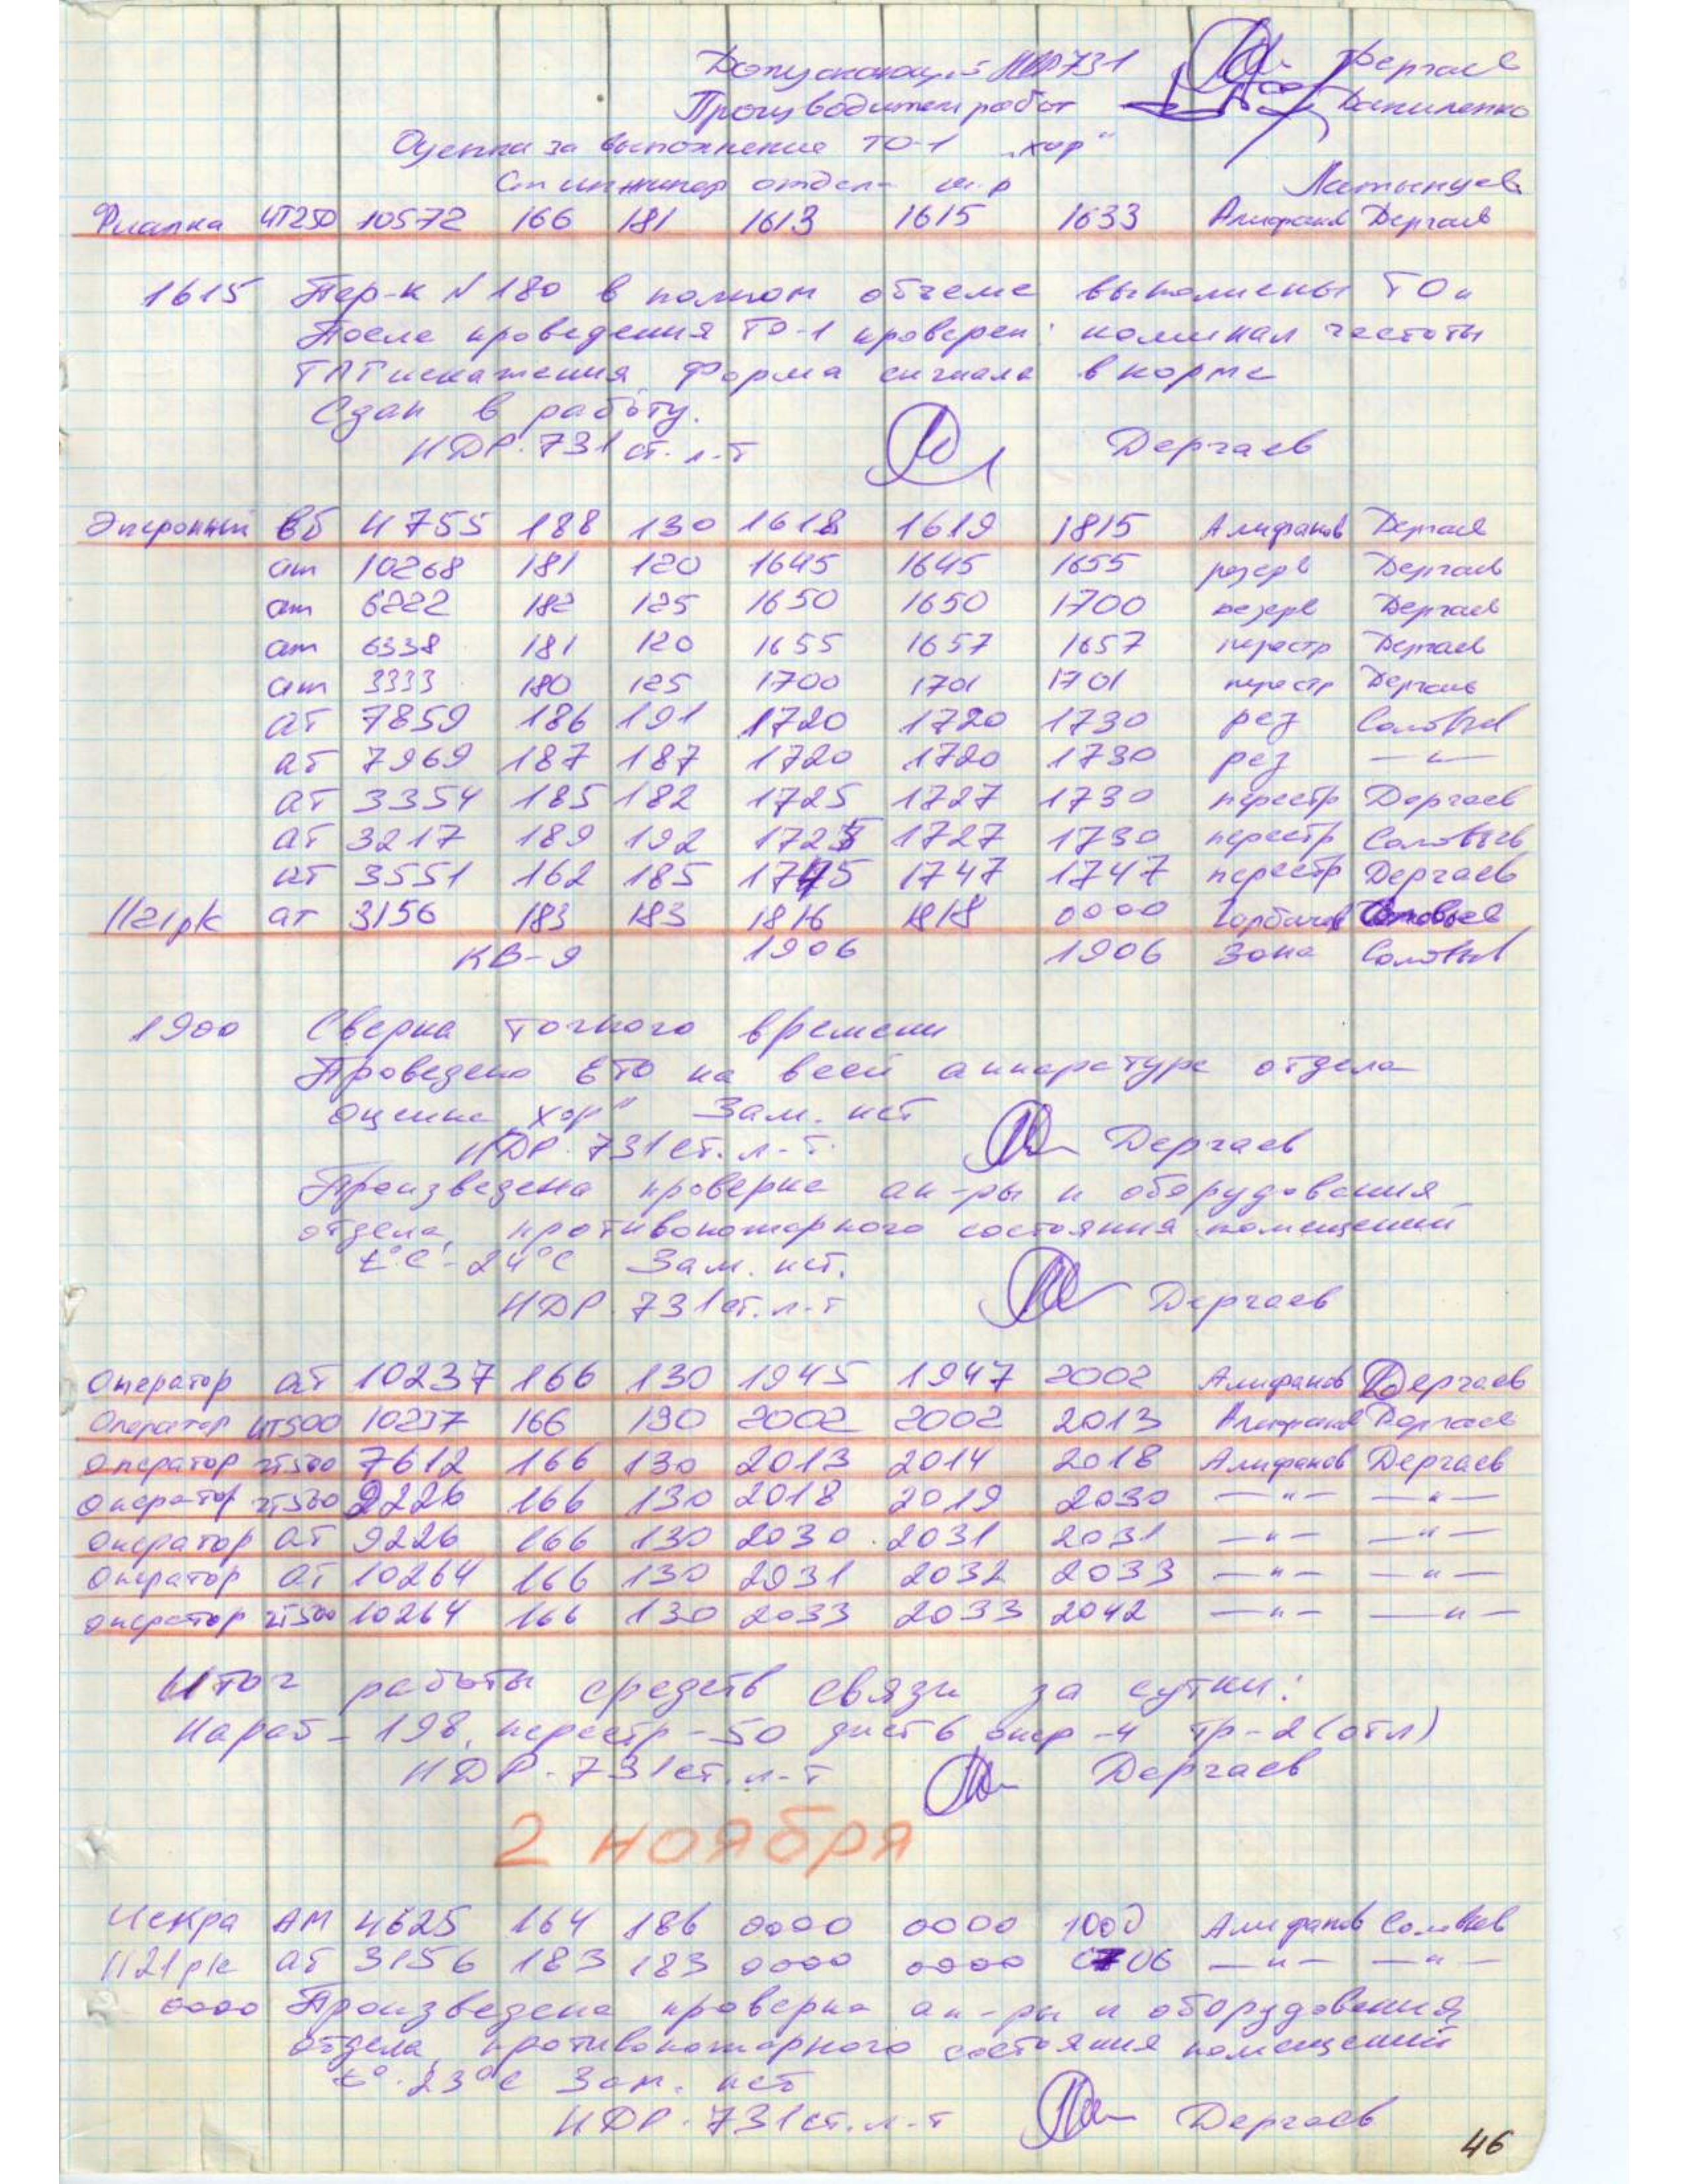 Допускающий НДР731 Дергаев
Производитель работ Даниленко
Оценка за выполнение ТО-1 „хор“
Ст инженер отдел м-р Латынцев
Фиалка ЧТ250 10572 166 181 1613 1615 1633 Алифанов Дергаев
1615 Пер-к N 180 в полном объеме выполнены ТО
После проведения ТО-1 проверен: номинал частоты
ТЛГ искажения, форма сигнала в норме
Сдан в работу.
НДР-731 ст. л-т Дергаев
ВБ 4755 188 130 1618 1619 1815 Алифанов Дергаев
ат 10268 181 120 1645 1645 1655 резерв Дергаев
ат 6222 182 125 1650 1650 1700 резерв Дергаев
ат 6338 181 120 1655 1657 1657 перестр Дергаев
ат 3333 180 125 1700 1701 1701 перестр Дергаев
ат 7859 186 191 1720 1720 1730 рез Соловьев
ат 7969 187 187 1720 1720 1730 рез —"—
ат 3354 185 182 1725 1727 1730 перестр Дергаев
ат 3217 189 192 1725 1727 1730 перестр Соловьев
чт 3551 162 185 1745 1747 1747 перестр Дергаев
1121рк ат 3156 183 183 1816 1818 0000 Горбачев Соловьев
КВ-9 1906 1906 Зона Соловьев
1900 Сверка точного времени
Проведено ЕТО на всей аппаратуре отдела
оценка „хор“ Зам. нет
НДР-731 ст. л-т. Дергаев
Произведена проверка ап-ры и оборудования
отдела, противопожарного состояния помещений
t°C - 24°C Зам. нет.
НДР-731 ст. л-т Дергаев
Оператор ат 10237 166 130 1945 1947 2002 Алифанов Дергаев
Оператор ЧТ500 10237 166 130 2002 2002 2013 Алифанов Дергаев
Оператор ЧТ500 7612 166 130 2013 2014 2018 Алифанов Дергаев
Оператор ЧТ500 9226 166 130 2018 2019 2030 —"— —"—
Оператор ат 9226 166 130 2030 2031 2031 —"— —"—
Оператор ат 10264 166 130 2031 2032 2033 —"— —"—
Оператор ЧТ500 10264 166 130 2033 2033 2042 —"— —"—
Итог работы средств связи за сутки:
Нараб - 198, перестр - 50 дист 6 опер - 4 тр - 2 (отл)
НДР-731 ст. л-т Дергаев
2 ноября
Искра АМ 4625 164 186 0000 0000 1000 Алифанов Соловьев
1121рк ат 3156 183 183 0000 0000 0706 —"— —"—
0000 Произведена проверка ап-ры и оборудования
отдела, противопожарного состояния помещений
t° - 23°C Зам. нет
НДР-731 ст. л-т Дергаев
46